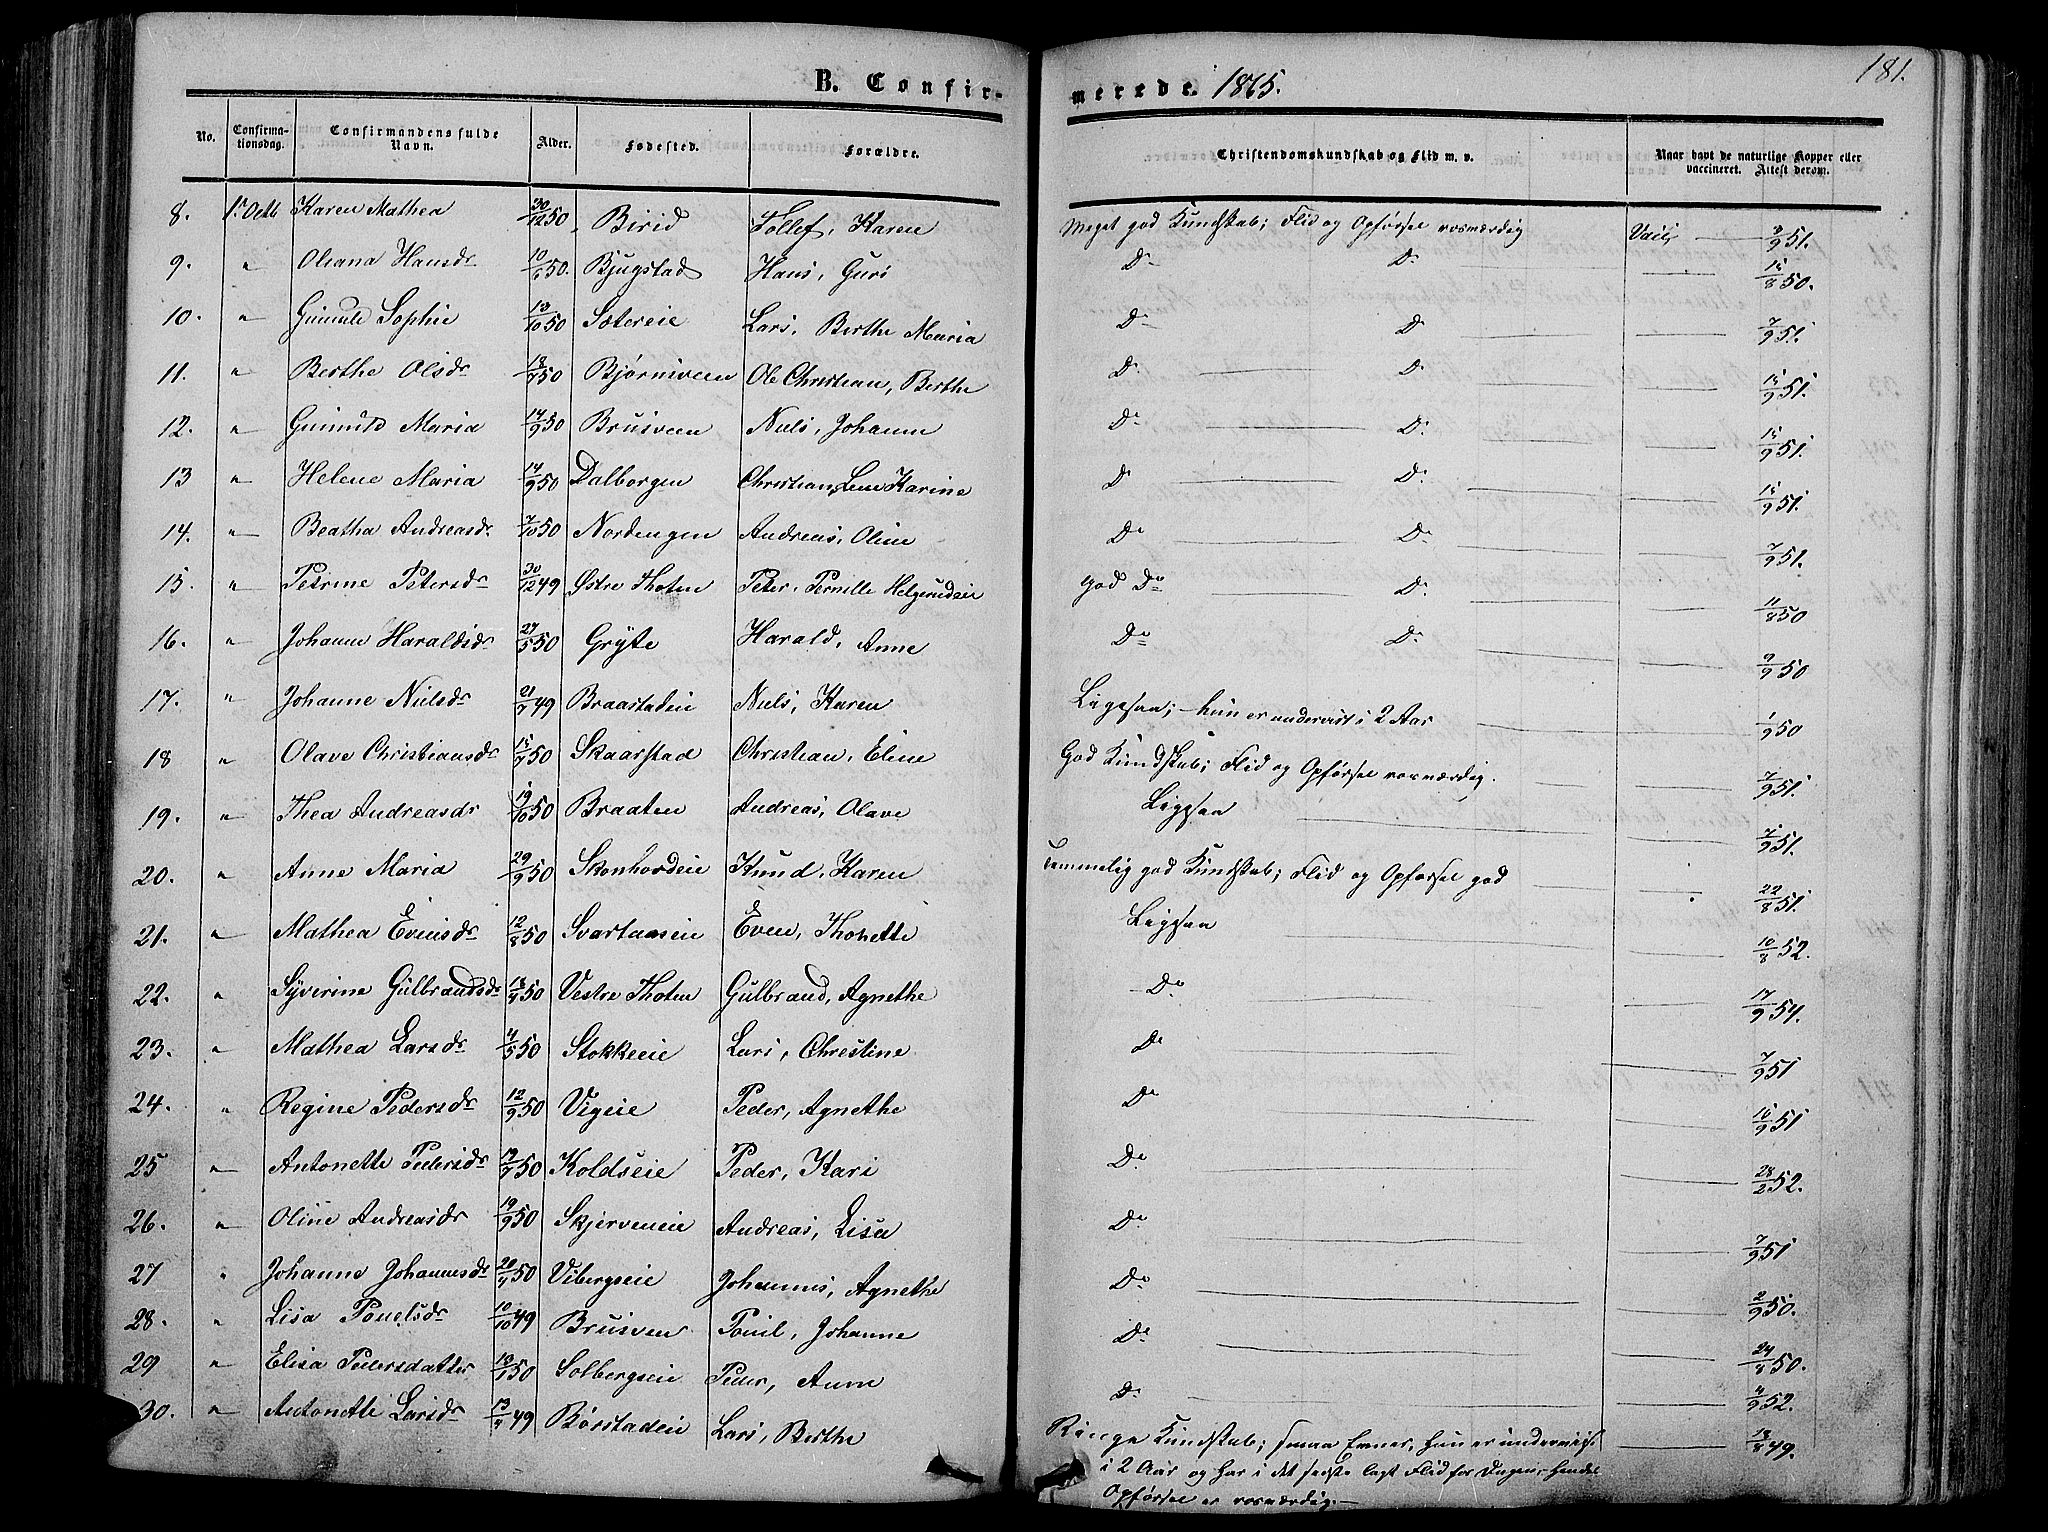 B. Confir- merede. 1865.
181.
No. Confirma- tionsdag. Confirmandens fulde Navn. Alder. Fødested. Forældre. Christendomskundskab og Flid m. v. Naar havt de naturlige Kopper eller vaccineret. Attest derom.
8. 1. Octb Karen Mathea 30/12 50 Birid Tollef, Karen Meget god Kundskab; Flid og Opførsel rosværdig Vacc 3/9 51.
9. " Oleana Hansdr 10/6 50. Bjugstad Hans, Guri Do Do 15/8 50.
10. " Gunild Sophie 13/10 50 Sætereie Lars, Berthe Maria Do Do 7/9 51.
11. " Berthe Olsdr 50 Bjørnsveen Ole Christian, Berthe Do Do 15/9 51.
12. " Gunild Maria 14/9 50 Brusveen Niels, Johanne Do Do 15/9 51.
13 " Helene Maria 14/9 50 Dalborgen Christian, Lene Karine Do Do 15/9 51.
14. " Beatha Andreasdr 7/10 50 Nordengen Andreas, Oline Do Do 7/9 51.
15. " Petrine Petersdr 30/12 49 Østre Thoten Peter, Pernille Helgerudeie god Do Do 11/8 50
16. " Johanne Haraldsdr 27/5 50 Gryte Harald, Anne Do Do 9/9 50
17. " Johanne Nielsdr 21/7 49 Braastadeie Niels, Karen Ligesaa; - hun er undervist i 2 Aar 1/9 50
18 " Olave Christiansdr 50 Skaarstad Christian, Eline God Kundskab; Flid og Opførsel rosværdig. 7/9 51.
19. " Thea Andreasdr 19/10 50 Braaten Andreas, Olave Ligesaa 7/9 51.
20. " Anne Maria 29/9 50 Skonhovdeie Knud, Karen Temmelig god Kundskab; Flid og Opførsel god 22/8 51.
21. " Mathea Evensdr 12/8 50 Svartaaseie Even, Thonette Ligesaa 10/8 52.
22. " Syverine Gulbrandsdr 50 Vestre Thoten Gulbrand, Agnethe Do 17/9 54.
23. " Mathea Larsdr 4/5 50 Stokkeeie Lars, Christine Do 7/9 51
24. " Regine Pedersdr 12/9 50 Vigeie Peder, Agnethe Do 15/9 51
25 " Antonette Pedersdr 50 Koldseie Peder, Kari Do 28/2 52.
26. " Oline Andreasdr 19/9 50 Skjerveneie Andreas, Lisa Do 7/9 51
27 " Johanne Johannesdr 20/4 50 Vibergseie Johannes, Agnethe Do 2/9 50.
28. " Lisa Pouelsdr 10/10 49 Brusven Pouel, Johanne Do 24/8 50.
29 " Elisa Pedersdatter 50 Solbergseie Peder, Anne Do 4/9 52.
30. " Antonette Larsdr 49 Børstadeie Lars, Berthe Ringe Kundskab; smaa Evner, hun er underviist 49.
i 2 Aar og har i det sidste lagt Flid for Dagen, hendes
Opførsel er rosværdig. -